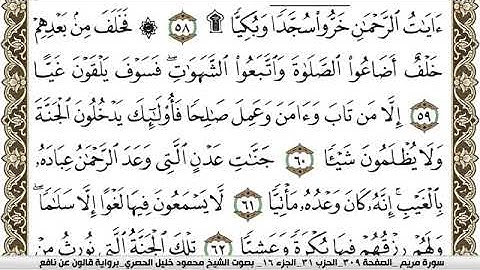 ءَايَٰتُ ٱلرَّحْمَٰنِ خَرُّوا۟ سُجَّدًا وَبُكِيًّا ۩ ٥٨ ۞ فَخَلَفَ مِنۢ بَعْدِهِمْ
خَلْفٌ أَضَاعُوا۟ ٱلصَّلَوٰةَ وَٱتَّبَعُوا۟ ٱلشَّهَوَٰتِ فَسَوْفَ يَلْقَوْنَ غَيًّا
٥٩ إِلَّا مَن تَابَ وَءَامَنَ وَعَمِلَ صَٰلِحًا فَأُو۟لَٰٓئِكَ يَدْخُلُونَ ٱلْجَنَّةَ
وَلَا يُظْلَمُونَ شَيْـًٔا ٦٠ جَنَّٰتِ عَدْنٍ ٱلَّتِى وَعَدَ ٱلرَّحْمَٰنُ عِبَادَهُۥ
بِالْغَيْبِ إِنَّهُۥ كَانَ وَعْدُهُۥ مَأْتِيًّا ٦١ لَّا يَسْمَعُونَ فِيهَا لَغْوًا إِلَّا سَلَٰمًا
وَلَهُمْ رِزْقُهُمْ فِيهَا بُكْرَةً وَعَشِيًّا ٦٢ تِلْكَ ٱلْجَنَّةُ ٱلَّتِى نُورِثُ مِنْ
سورة مريم _الصفحة ٣٠٩_الحزب ٣١ _الجزء ١٦_ بصوت الشيخ محمود خليل الحصري_برواية قالون عن نافع